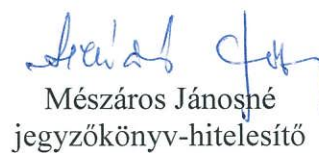 Mészáros Jánosné
jegyzőkönyv-hitelesítő